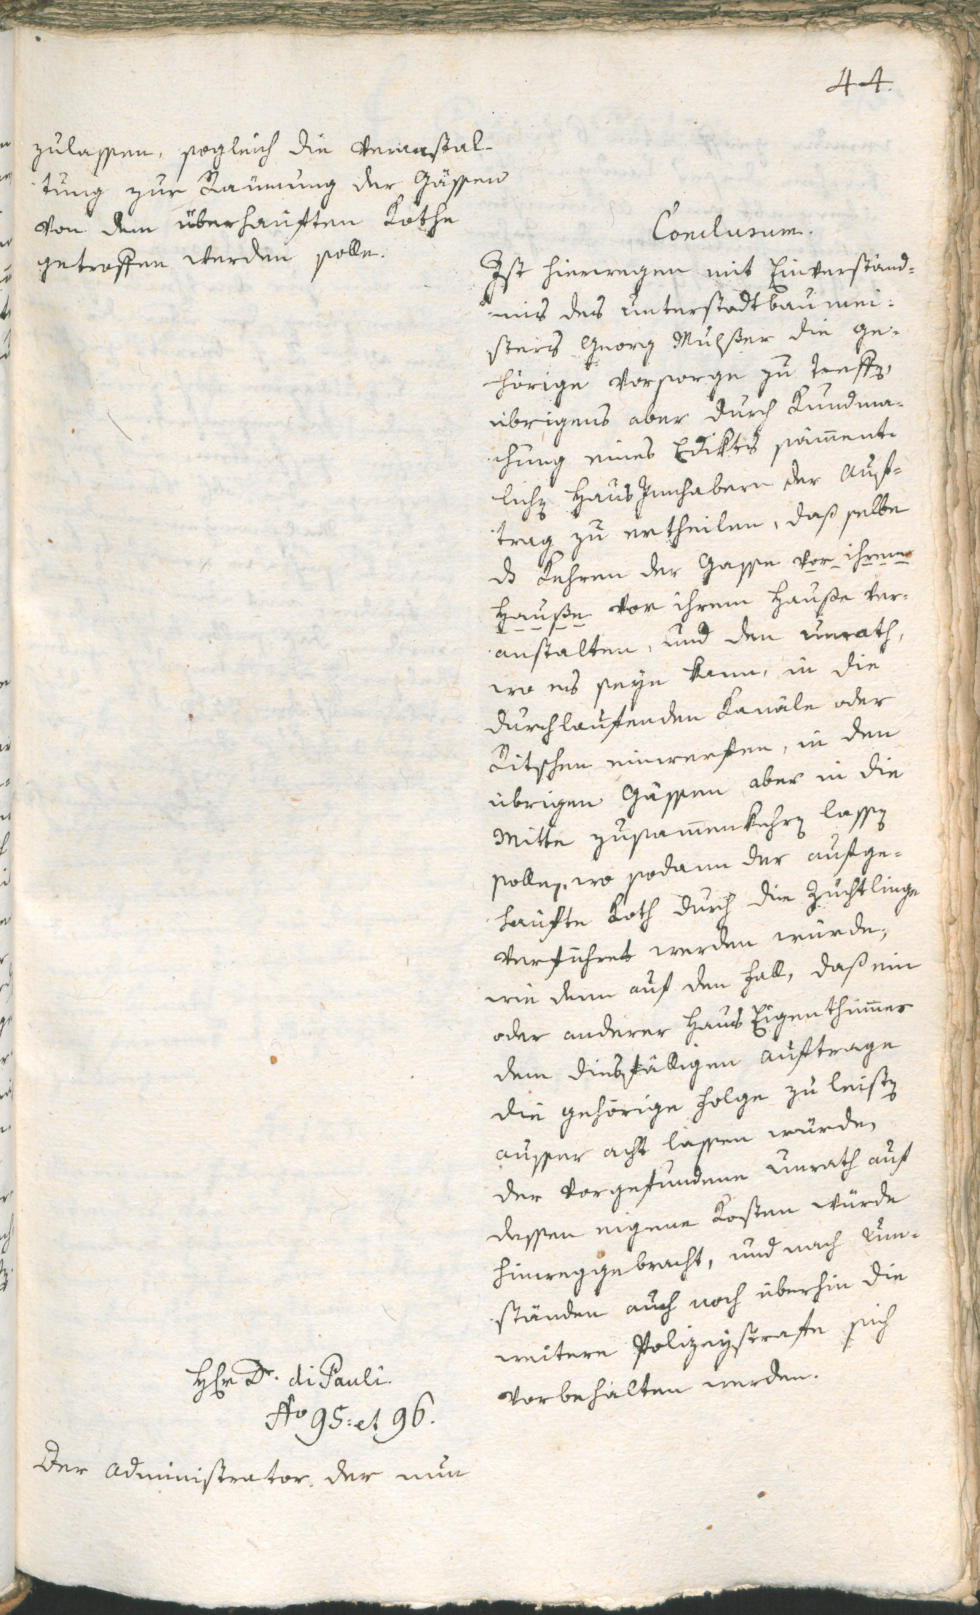 44.
zulassen, sogleich die Veranstal-
tung zur Räumung der Gässen
von dem überhauften Kothe
getroffen werden solle.
Conclusum.
Ist hierwegen mit Einverständ-
nis des Unterstadtbaumei-
sters Georg Mulßer die ge-
hörige Vorsorge zu treffen,
übrigens aber durch Kundma-
chung eines Edikts sämment-
lichen Haus Innhabern der Auf-
trag zu ertheilen, daß selbe
das Kehren der Gasse vor ihrem
Hauße vor ihrem Hauße ver-
anstalten, und den Unrath,
wo es seyn kann, in die
durchlaufenden Kanäle oder
Ritschen einwerfen, in den
übrigen Gässen aber in die
Mitte zusammenkehren lassen
sollen, wo sodann der aufge-
häufte Koth durch die Züchtlinge
verführet werden würde,
wie denn auf den Fall, daß ein
oder anderer Haus Eigenthümmer
dem diesfälligen Auftrage
die gehörige Folge zu leisten
ausser acht lassen würde,
der vorgefundene Unrath auf
dessen eigene Kosten würde
hinweggebracht, und nach Um-
ständen auch noch überhin die
weitere Polizeystrafe sich
vorbehalten werden.
Hr Dr. di Pauli.
No 95: et 96.
Der Administrator der nun